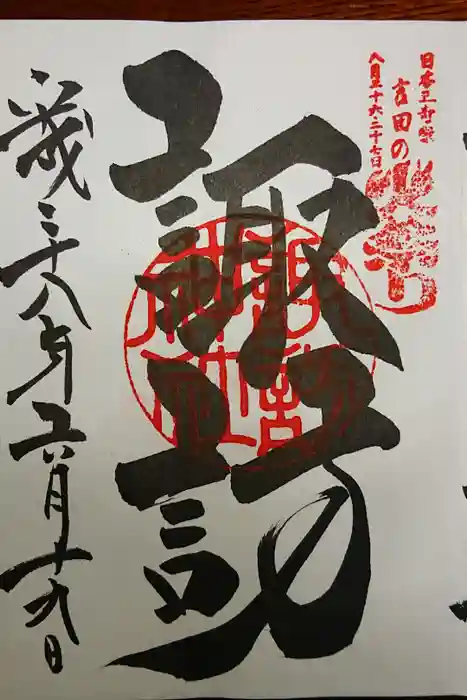 日本三奇祭
吉田の火祭り
八月二十六・二十七日
諏訪
平成二十八年六月十九日